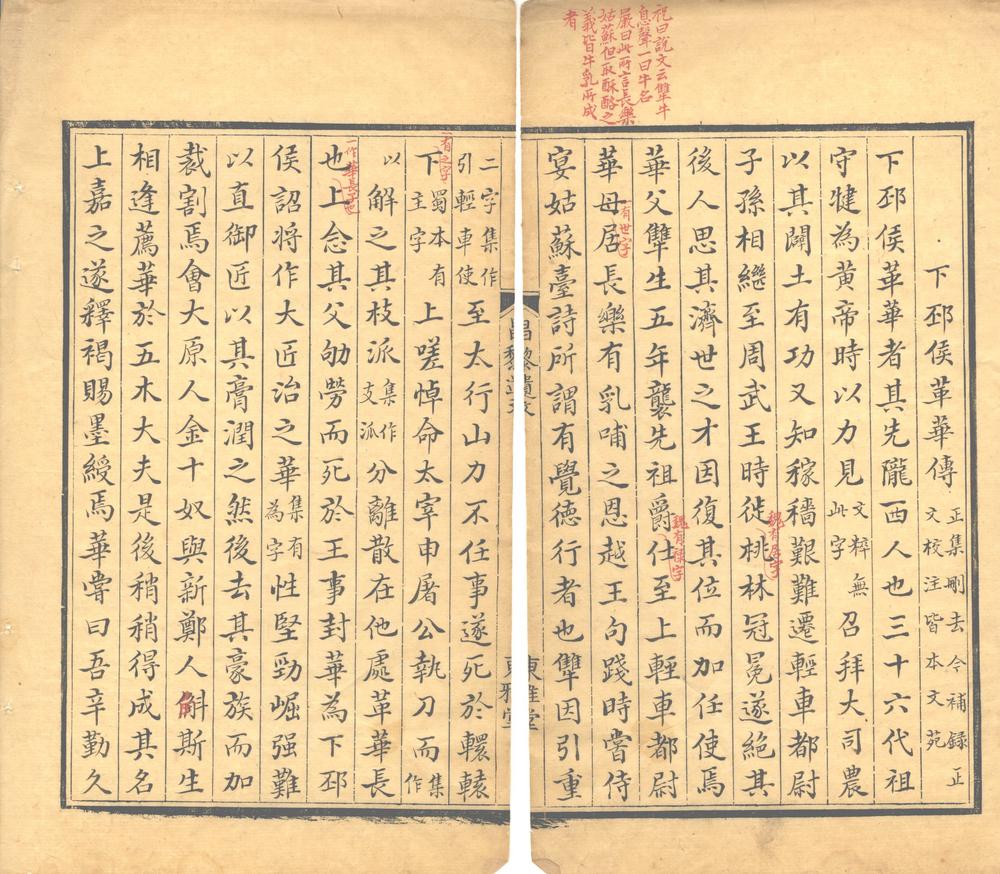 祝曰說文云犨牛
息聲一曰牛名
嚴曰此所言長樂
姑蘇但取酥酪之
義皆牛乳所成
者
下邳侯革華傳
正集刪去今補録正
文校注皆本文苑
下邳侯革華者其先隴西人也三十六代祖
守犍為黄帝時以力見
文粹無
此字
召拜大司農
以其闢土有功又知稼穡艱難遷輕車都尉
子孫相繼至周武王時徙桃林冠冕遂絕其
魏有居字
後人思其濟世之才因復其位而加任使焉
華父犨生五年襲先祖爵仕至上輕車都尉
魏有祿字
華母居長樂有乳哺之恩越王句踐時嘗侍
一有世字
宴姑蘇臺詩所謂有覺徳行者也犨因引重
昌黎遺文
東雅堂
二字集作
引輕車使
至太行山力不任事遂死於轘轅
下
蜀本有
主字
上嗟悼命太宰申屠公執刀而
集
作
一有之字
以
解之其枝派
集作
支派
分離散在他處革華長
一作華長子也
也上念其父劬勞而死於王事封華為下邳
侯詔將作大匠治之華
集有
為字
性堅勁崛强難
以直御匠以其膏潤之然後去其豪族而加
裁割焉會大原人金十奴與新鄭人斛斯生
角
相逢薦華於五木大夫是後稍稍得成其名
上嘉之遂釋褐賜墨綬焉華嘗曰吾辛勤久